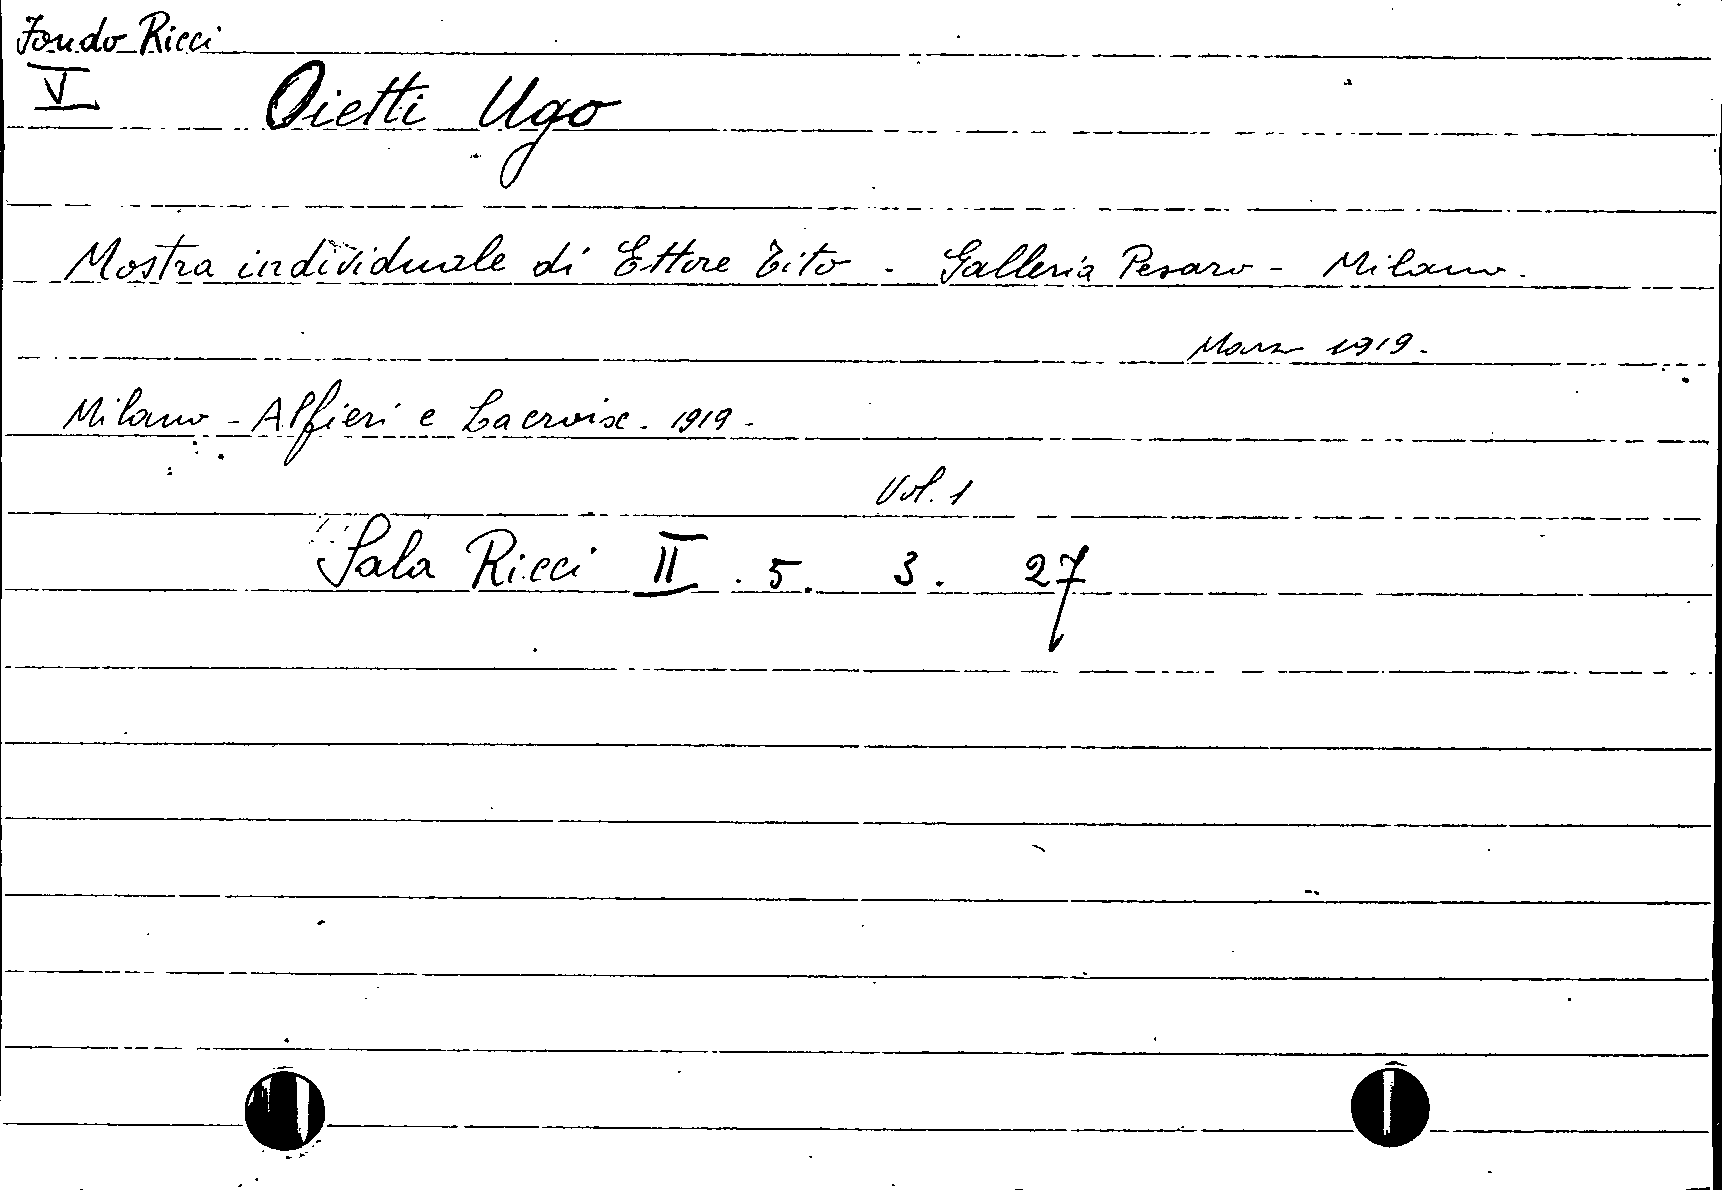 Fondo Ricci
V Oietti Ugo
Mostra individuale di Ettore Tito. Galleria Pesaro - Milano.
Marzo 1919.
Milano - Alfieri e Lacroix. 1919.
Vol. 1
Sala Ricci II. 5. 3. 27